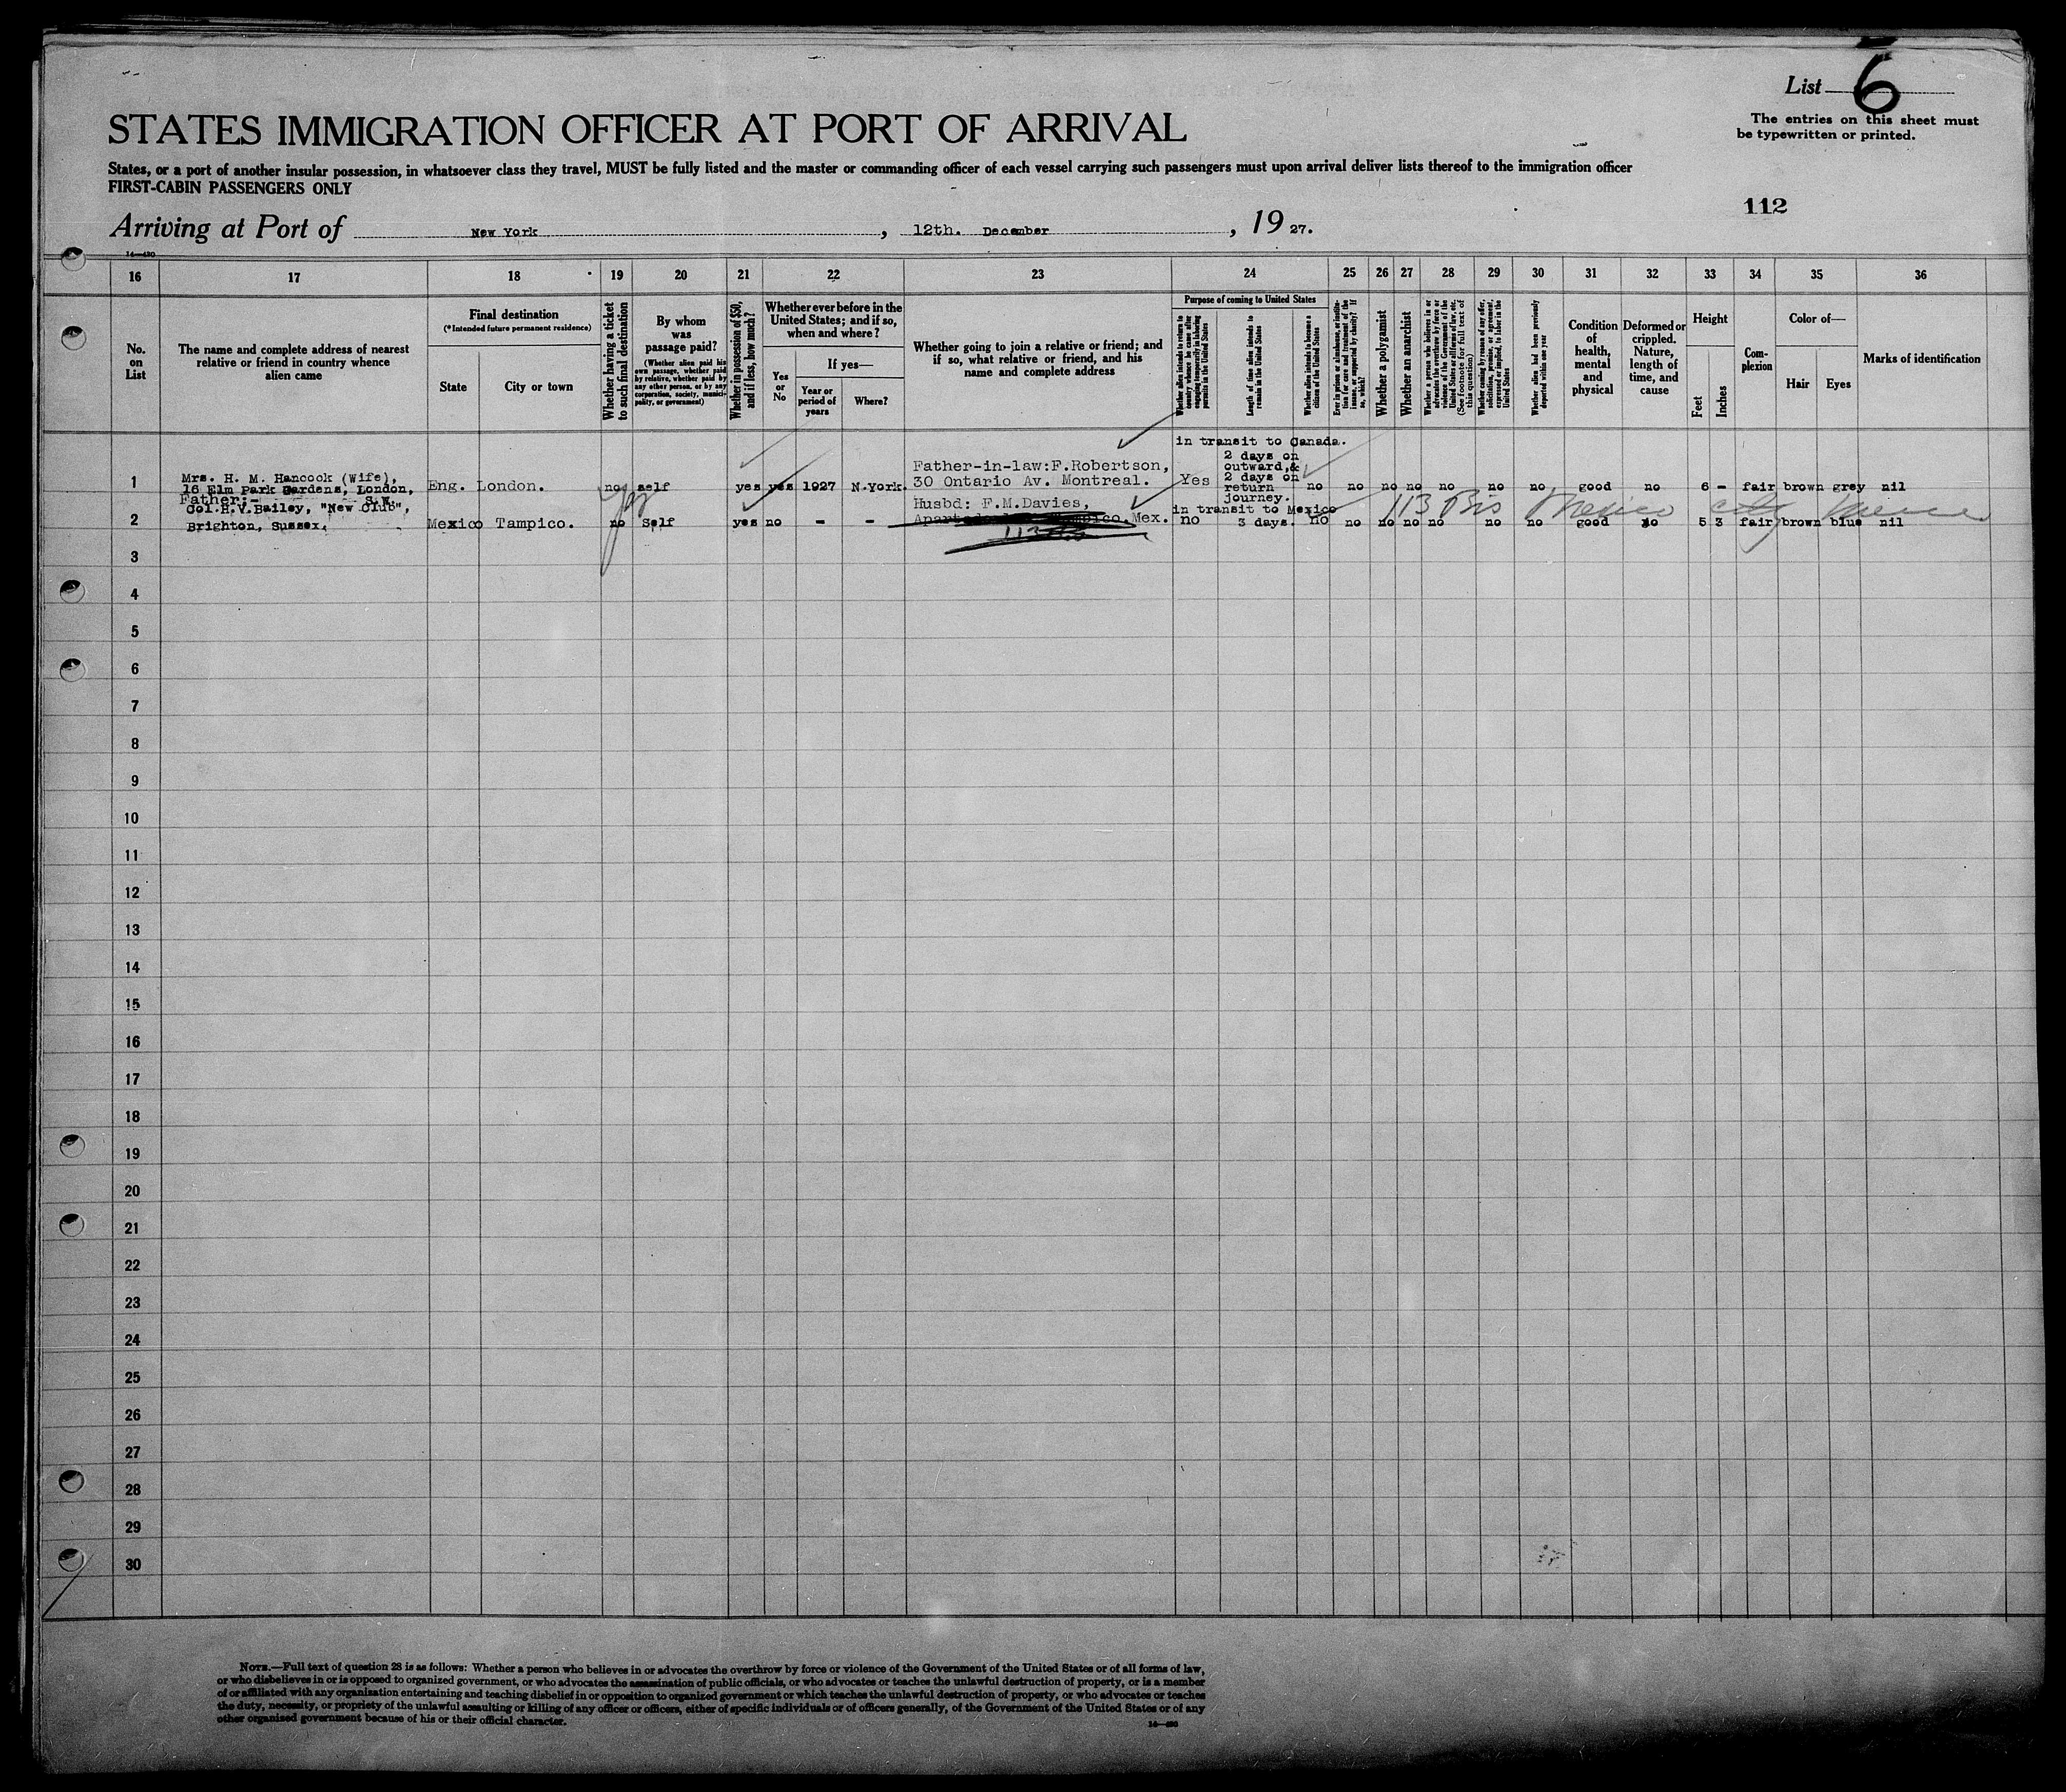 List 6
The entries on this sheet must
be typewritten or printed.
STATES IMMIGRATION OFFICER AT PORT OF ARRIVAL
States, or a port of another insular possession, in whatsoever class they travel, MUST be fully listed and the master or commanding officer of each vessel carrying such passengers must upon arrival deliver lists thereof to the immigration officer
FIRST-CABIN PASSENGERS ONLY
112
Arriving at Port of New York, 12th. December, 19 27.
16 17 18 19 20 21 22 23 24 25 26 27 28 29 30 31 32 33 34 35 36
No.
on
List
The name and complete address of nearest
relative or friend in country whence
alien came
Final destination
(*Intended future permanent residence)
State
City or town
Whether having a ticket
to such final destination
By whom
was
passage paid?
(Whether alien paid his
own passage, whether paid
by relative, whether paid by
any other person, or by any
corporation, society, munici-
pality, or government)
Whether in possession of $50,
and if less, how much?
Whether ever before in the
United States; and if so,
when and where?
If yes—
Yes
or
No
Year or
period of
years
Where?
Whether going to join a relative or friend; and
if so, what relative or friend, and his
name and complete address
Purpose of coming to United States
Whether alien intends to return to
country whence he came after
engaging temporarily in laboring
pursuits in the United States
Length of time alien intends to
remain in the United States
Whether alien intends to become a
citizen of the United States
Ever in prison or almshouse, or institu-
tion for care and treatment of the
insane, or supported by charity? If
so, which?
Whether a polygamist
Whether an anarchist
Whether a person who believes in or
advocates the overthrow by force or
violence of the Government of the
United States or all forms of law, etc.
(See footnote for full text of
this question)
Whether coming by reason of any offer,
solicitation, promise, or agreement,
expressed or implied, to labor in the
United States
Whether alien had been previously
deported within one year
Condition
of
health,
mental
and
physical
Deformed or
crippled.
Nature,
length of
time, and
cause
Height
Feet
Inches
Com-
plexion
Color of—
Hair
Eyes
Marks of identification
in transit to Canada.
1 Mrs. H. M. Hancock (Wife),
16 Elm Park Gardens, London,
S.W.
Eng. London. no self yes yes 1927 N.York.
Father-in-law:F.Robertson,
30 Ontario Av. Montreal.
Yes
2 days on
outward,&
2 days on
return
journey.
no no no no no no no good no 6 - fair brown grey nil
2 Father:-
Col.H.V.Bailey, "New Club",
Brighton, Sussex.
Mexico Tampico. no Self yes no - -
Husbd: F.M.Davies,
Mex.
in transit to Mexico
no 3 days. no no no no no no no good no 5 3 fair brown blue nil
113 Bis Mexico city Mexico
3
4
5
6
7
8
9
10
11
12
13
14
15
16
17
18
19
20
21
22
23
24
25
26
27
28
29
30
NOTE.—Full text of question 28 is as follows: Whether a person who believes in or advocates the overthrow by force or violence of the Government of the United States or of all forms of law,
or who disbelieves in or is opposed to organized government, or who advocates the assassination of public officials, or who advocates or teaches the unlawful destruction of property, or is a member
of or affiliated with any organization entertaining and teaching disbelief in or opposition to organized government or which teaches the unlawful destruction of property, or who advocates or teaches
the duty, necessity, or propriety of the unlawful assaulting or killing of any officer or officers, either of specific individuals or of officers generally, of the Government of the United States or of any
other organized government because of his or their official character.